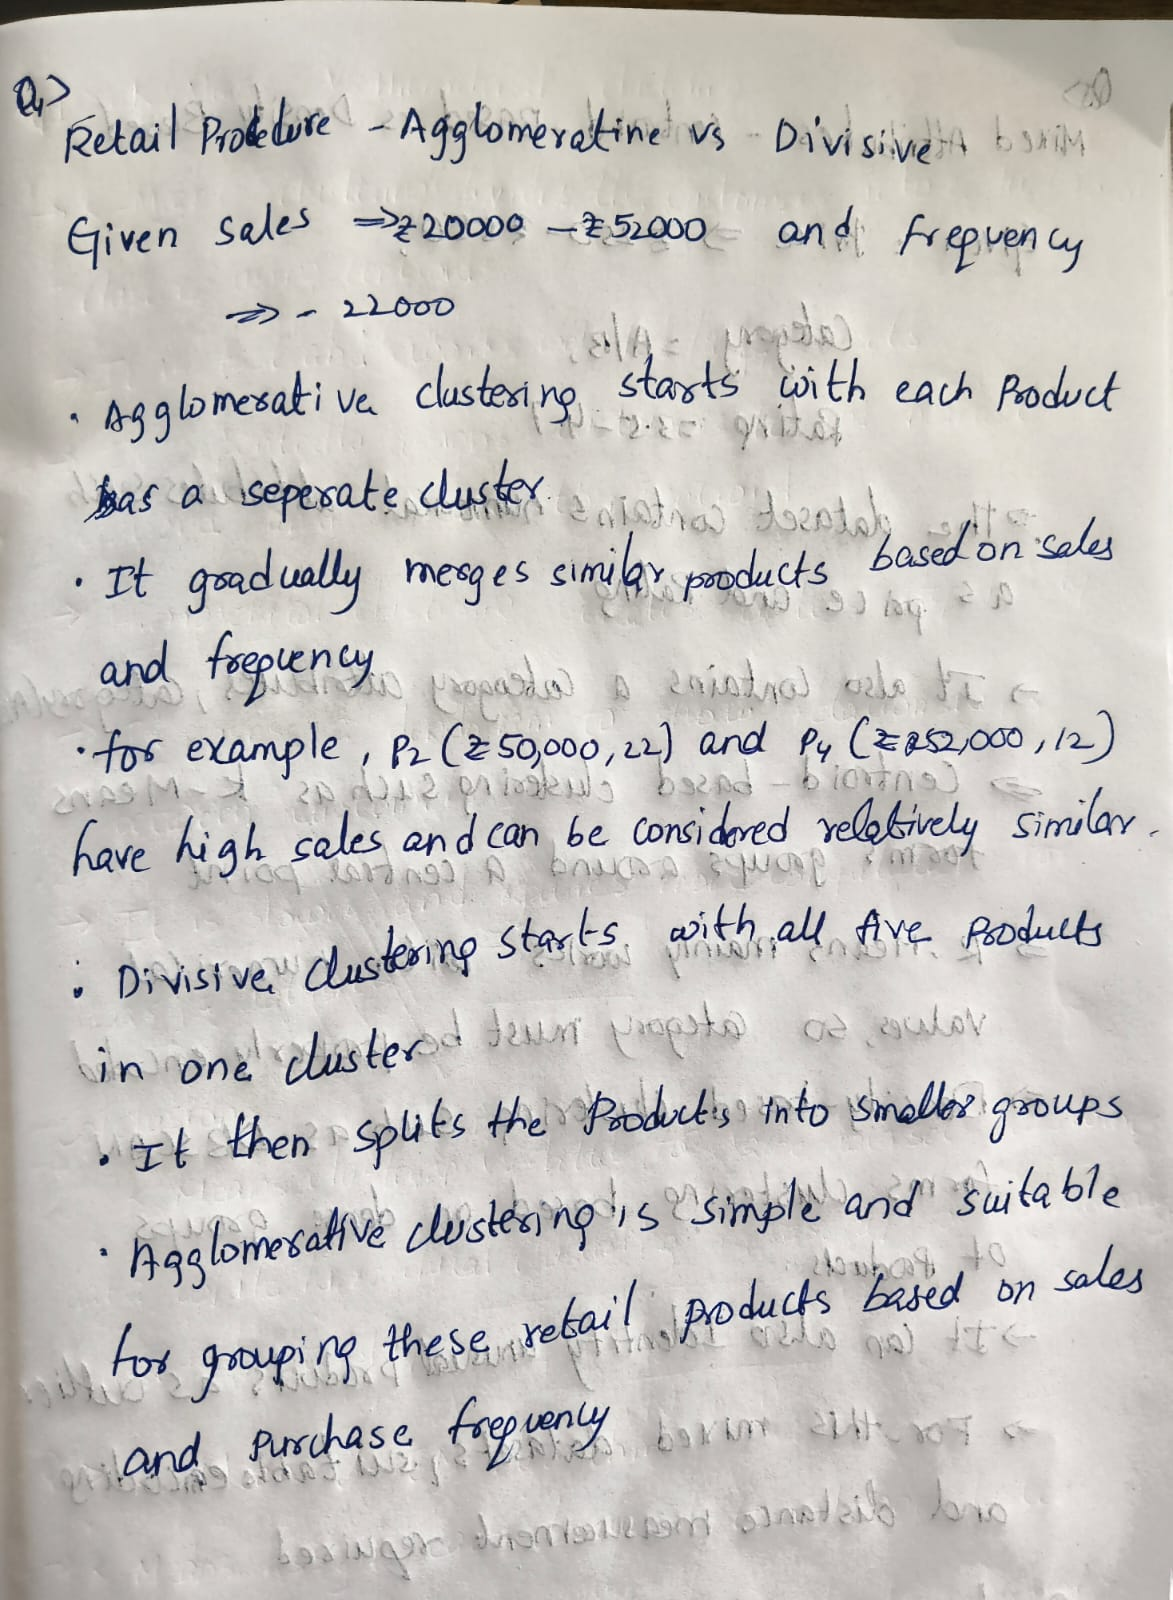 Q4>
Retail Procedure - Agglomerative vs Divisive
Given sales => ₹20000 - ₹52000 and frequency
=> - 22000
• Agglomerative clustering starts with each Product
has a seperate cluster.
• It gradually merges similar products based on sales
and frequency
• for example, P2 (₹50,000, 22) and P4 (₹52,000, 12)
have high sales and can be considered relatively similar.
• Divisive clustering starts with all five Products
in one cluster
• It then splits the Products into smaller groups
• Agglomerative clustering is simple and suitable
for grouping these retail products based on sales
and purchase frequency